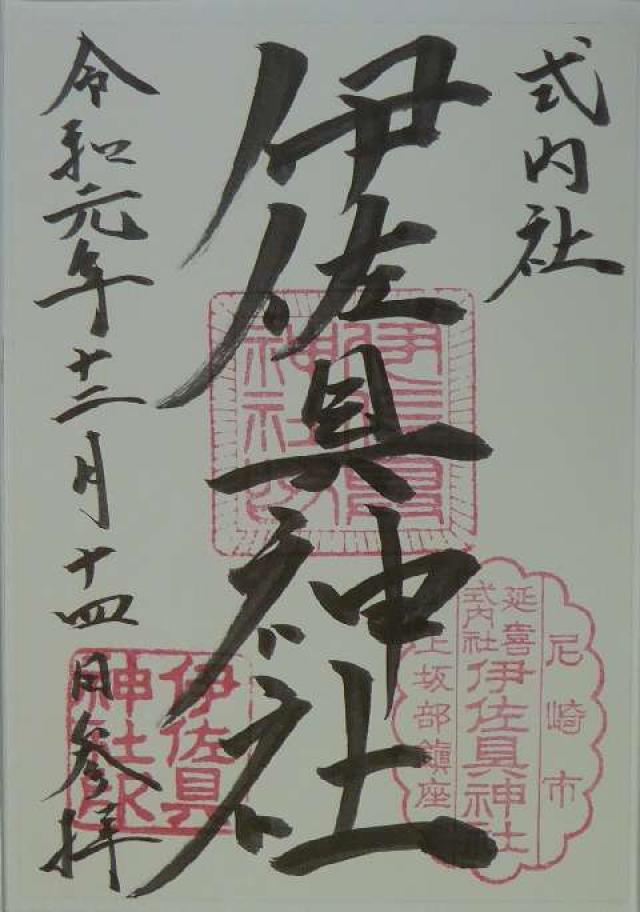 式内社
伊佐具神社
令和元年十二月十四日参拝
伊佐具
神社印
尼崎市
延喜
式内社
伊佐具神社
上坂部鎮座